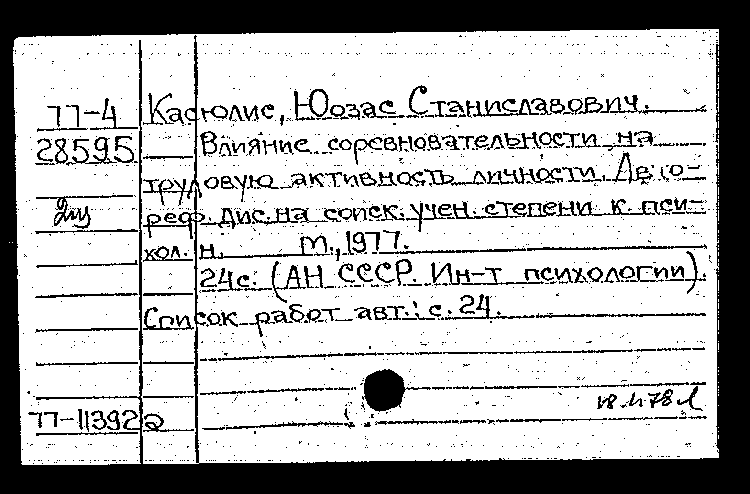 77-4 Касюлис, Юозас Станиславович.
28595 Влияние соревновательности на
трудовую активность личности. Авто-
реф. дис. на соиск. учен. степени к. пси-
хол. н. М., 1977.
24с. (АН СССР. Ин-т психологии).
Список работ авт.: с. 24.
77-11392